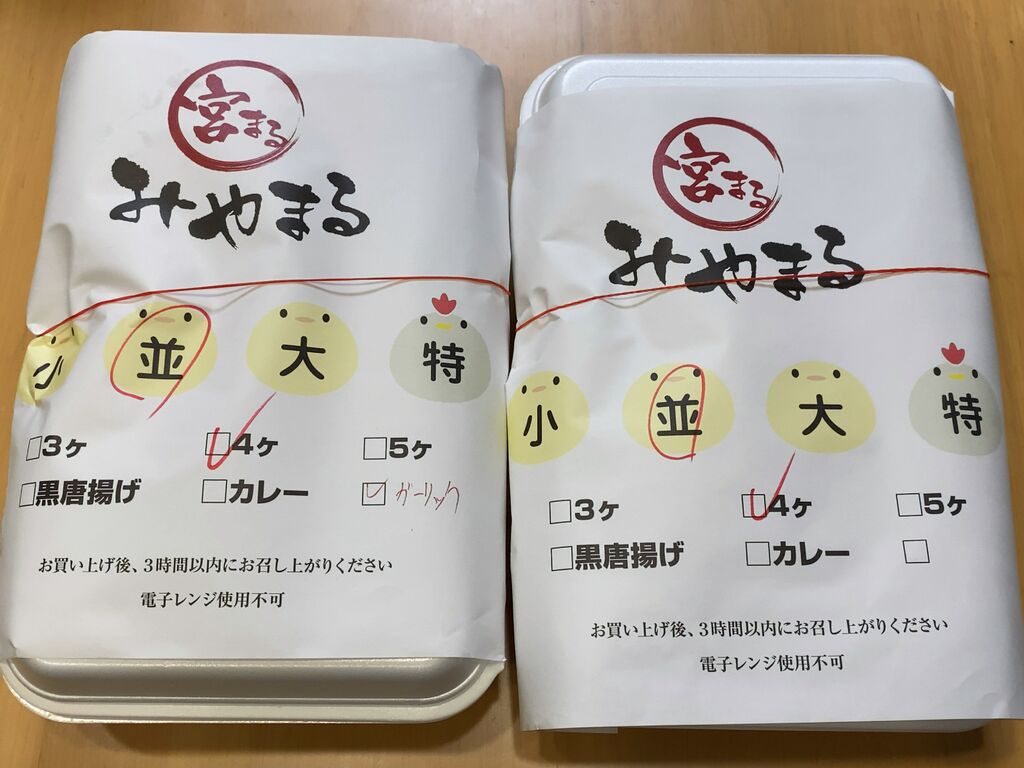 宮まる
みやまる
小 並 大 特
□3ヶ □4ヶ □5ヶ
□黒唐揚げ □カレー □ガーリック
お買い上げ後、3時間以内にお召し上がりください
電子レンジ使用不可
宮まる
みやまる
小 並 大 特
□3ヶ □4ヶ □5ヶ
□黒唐揚げ □カレー □
お買い上げ後、3時間以内にお召し上がりください
電子レンジ使用不可